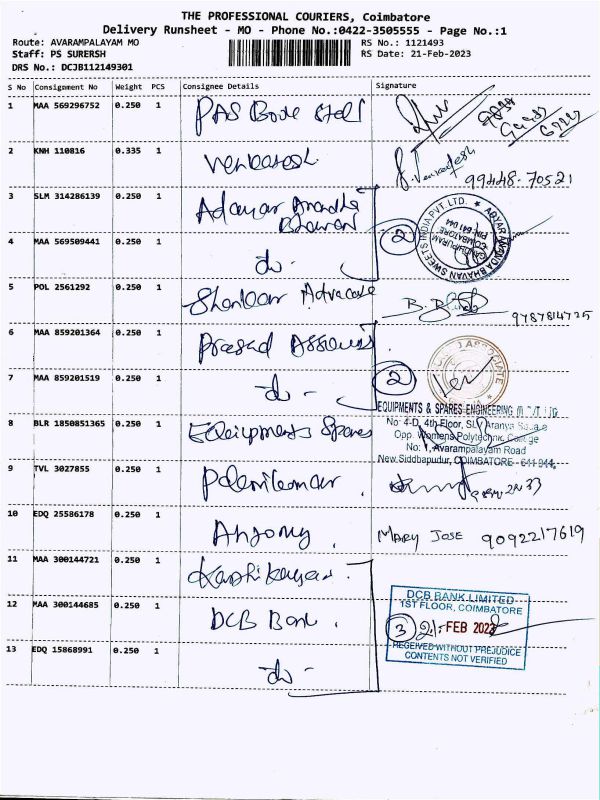 THE PROFESSIONAL COURIERS, Coimbatore
Delivery Runsheet - MO - Phone No.:0422-3505555 - Page No.:1
Route: AVARAMPALAYAM MO RS No.: 1121493
Staff: PS SURERSH RS Date: 21-Feb-2023
DRS No.: DCJB112149301
S No Consignment No Weight PCS Consignee Details Signature
1 MAA 569296752 0.250 1 PAS Bore
2 KNH 110816 0.335 1 Venkatesh Venkatesh 99448-70521
3 SLM 314286139 0.250 1 Adayar Anandha Bhavan
4 MAA 569509441 0.250 1 - do - 2
ADYAR ANANDA BHAVAN SWEETS INDIA PVT. LTD.
GANDHIPURAM
COIMBATORE
PIN: 641 044
5 POL 2561292 0.250 1 Shankar Advocate
6 MAA 859201364 0.250 1 Prasad
7 MAA 859201519 0.250 1 - do - 2
ASSOCIATE
8 BLR 1850851365 0.250 1 Equipments Spares
EQUIPMENTS & SPARES ENGINEERING
No: 4-D, 4th Floor, SLV Aranya Square
Opp. Womens Polytechnic College
No: 1, Avarampalayam Road
New Siddhapudur, COIMBATORE - 641 044.
9 TVL 3027855 0.250 1 Palanikumar
10 EDQ 25586178 0.250 1 Antony MARY JOSE 9092217619
11 MAA 300144721 0.250 1
12 MAA 300144685 0.250 1 DCB Bank
DCB BANK LIMITED
1ST FLOOR, COIMBATORE
3 21 FEB 2023
RECEIVED WITHOUT PREJUDICE
CONTENTS NOT VERIFIED
13 EDQ 15868991 0.250 1 - do -